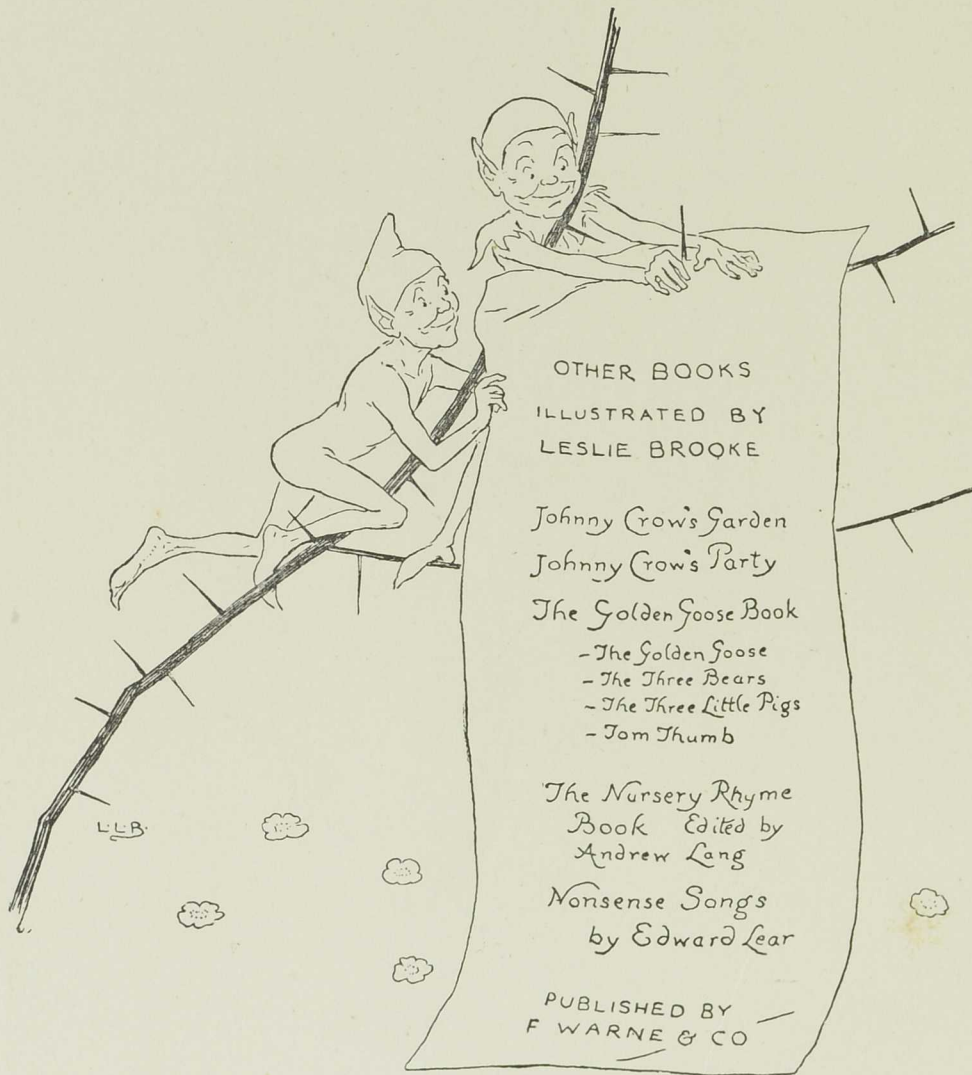 OTHER BOOKS
ILLUSTRATED BY
LESLIE BROOKE
Johnny Crow's Garden
Johnny Crow's Party
The Golden Goose Book
- The Golden Goose
- The Three Bears
- The Three Little Pigs
- Tom Thumb
The Nursery Rhyme
Book Edited by
Andrew Lang
Nonsense Songs
by Edward Lear
PUBLISHED BY
F WARNE & CO
L.L.B.